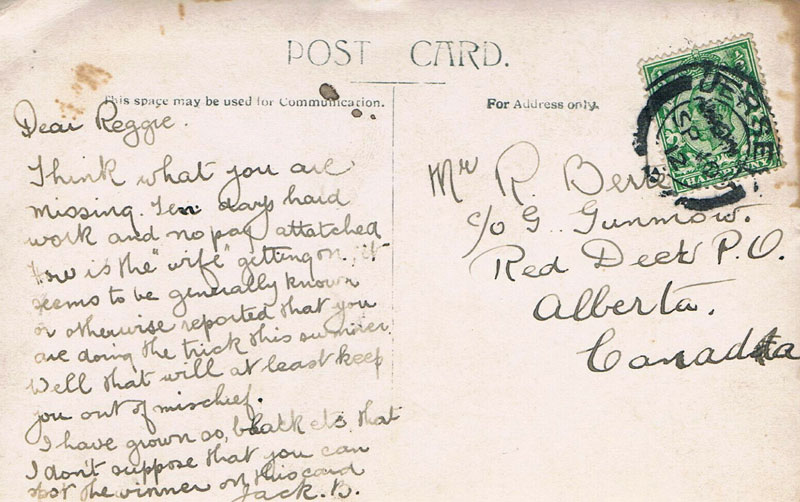 POST CARD.
This space may be used for Communication.
For Address only.
Dear Reggie.
Think what you are
missing. Ten days hard
work and no pay attatched
How is the "wife" getting on, it
seems to be generally known
or otherwise reported that you
are doing the trick this summer.
Well that will at least keep
you out of mischief.
I have grown so, black etc that
I don't suppose that you can
spot the winner on this card
Jack. B.
Mr R.
c/o G. Gunmow.
Red Deer P.O.
Alberta.
Canada
JERSE
HALFPENNY